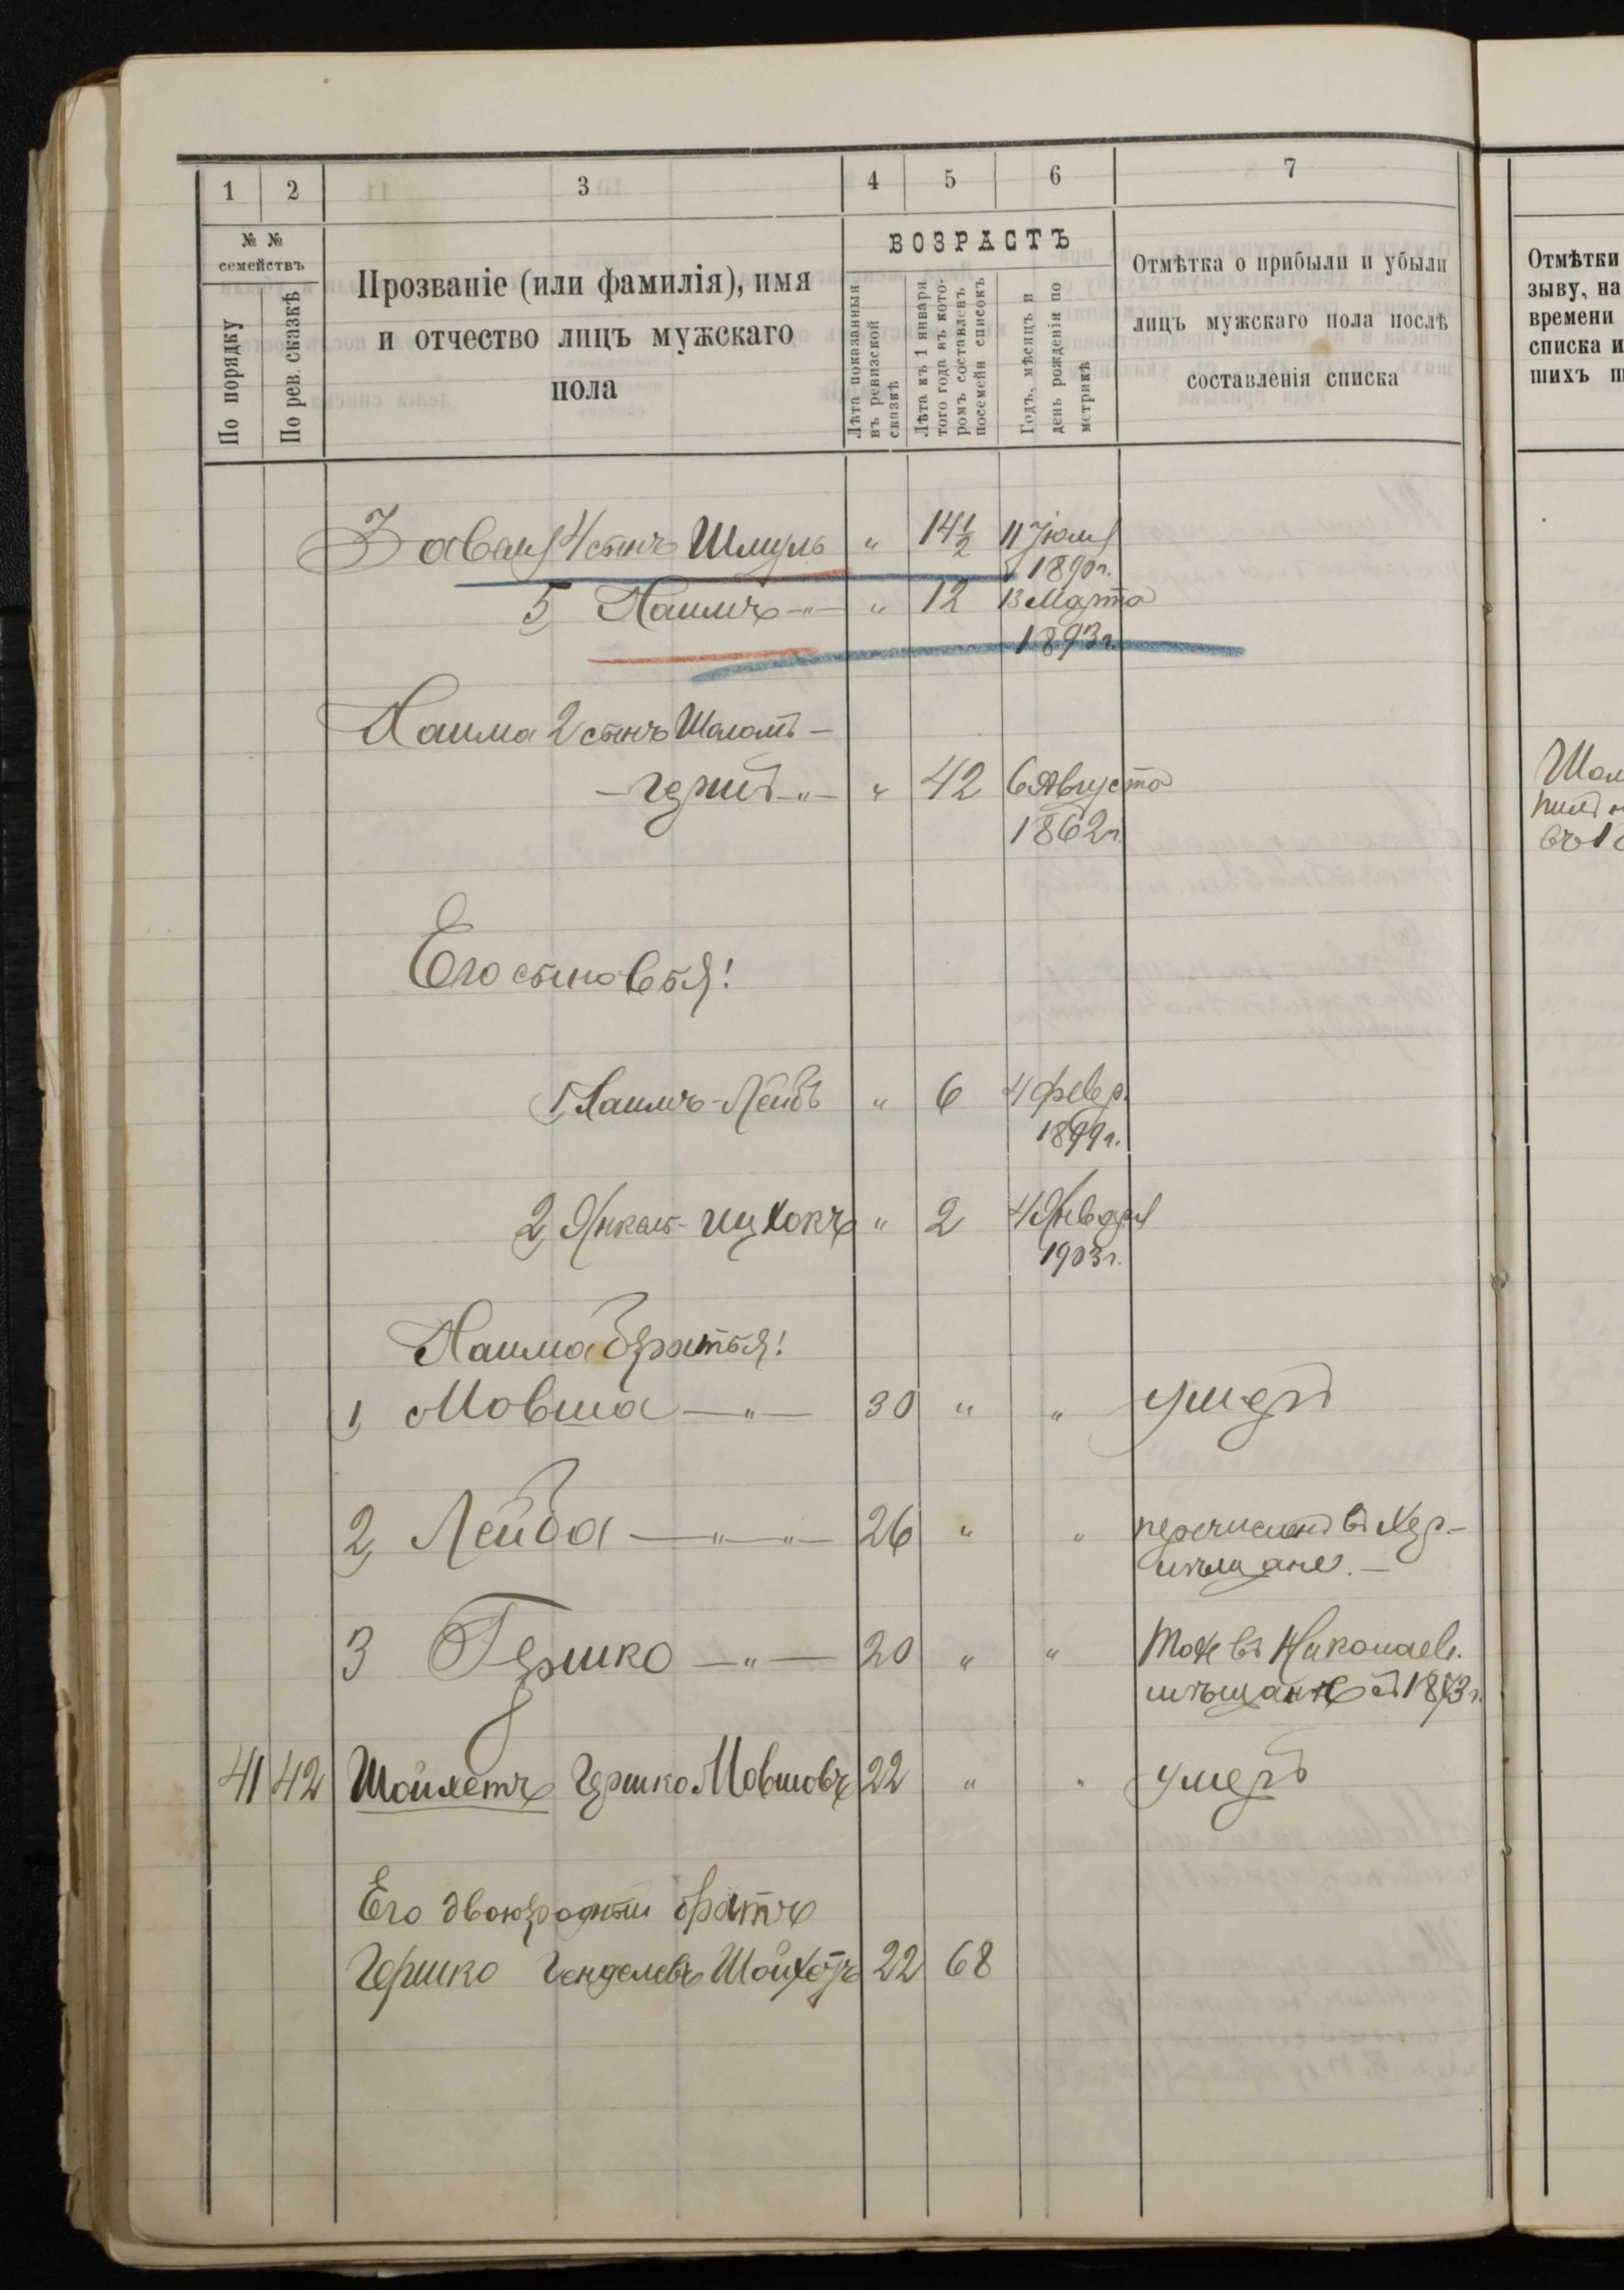 1 2 3 4 5 6 7
№ №
семействъ
По порядку
По рев. сказкѣ
Прозваніе (или фамилія), имя
и отчество лицъ мужскаго
пола
ВОЗРАСТЪ
Лѣта показанныя
въ ревизской
сказкѣ
Лѣта къ 1 января
того года въ кото-
ромъ составленъ
посемейн списокъ
Годъ, мѣсяцъ и
день рожденія по
метрикѣ
Отмѣтка о прибыли и убыли
лицъ мужскаго пола послѣ
составленія списка
Отмѣтки
зыву, на
времени
списка и
шихъ п
4 сынъ Шмуль " 14½ 11 Іюля
1890 г.
5, Хаимъ -"- " 12 13 Марта
1893 г.
Хаима 2 сынъ Шоломъ -
- Герш -"- " 42 6 Августа
1862 г.
Его сыновья!
1, Хаимъ-Лейбъ " 6 4 февр.
1899 г.
2, Янкель-Ицхокъ " 2 4 Января
1903 г.
Хаима братья!
1, Мовша -"- 30 " " умеръ
2, Лейба -"-"- 26 " " перечисленъ въ Хер.-
мѣщане. -
3 Гершко -"- 20 " " Тоже въ Николаев.
мѣщане съ 1873 г.
41 42 Шойхетъ Гершко Мовшовъ 22 " " умеръ
Его двоюродный братъ
Гершко Генделевъ Шойхетъ 22 68